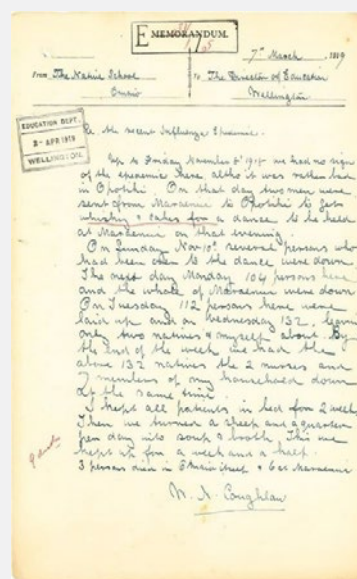 E MEMORANDUM.
7th March 1919
From The Native School
Omaio
To The Director of Education
Wellington
EDUCATION DEPT.
2 - APR 1919
WELLINGTON
Re the recent Influenza Epidemic.
Up to Friday November 8th 1918 we had no signs
of the epidemic here altho it was rather bad
in Opotiki. On that day two men were
sent from Maraenui to Opotiki to get
whisky & cakes for a dance to be held
at Maraenui on that evening.
On Sunday Nov 10th several persons who
had been to the dance were down
The next day Monday 104 persons here
and the whole of Maraenui were down
On Tuesday 112 persons here were
laid up and on Wednesday 132, leaving
only two natives & myself about. By
the end of the week we had the
above 132 natives the 2 nurses and
7 members of my household down
at the same time.
I kept all patients in bed for 2 weeks
Then we turned a sheep and a quarter
per day into soup & broth, This we
kept up for a week and a half.
3 persons died in Omaio itself & 6 at Maraenui
9 deaths
W. N. Coughlan